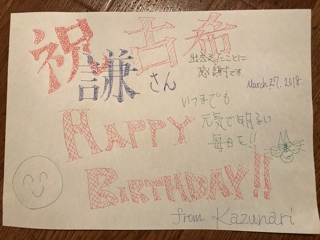 祝 古希
謙さん
出会えたことに
感謝です
March 27, 2018
いつまでも
元気で明るい
毎日を!!
HAPPY
BIRTHDAY!!
from Kazunari